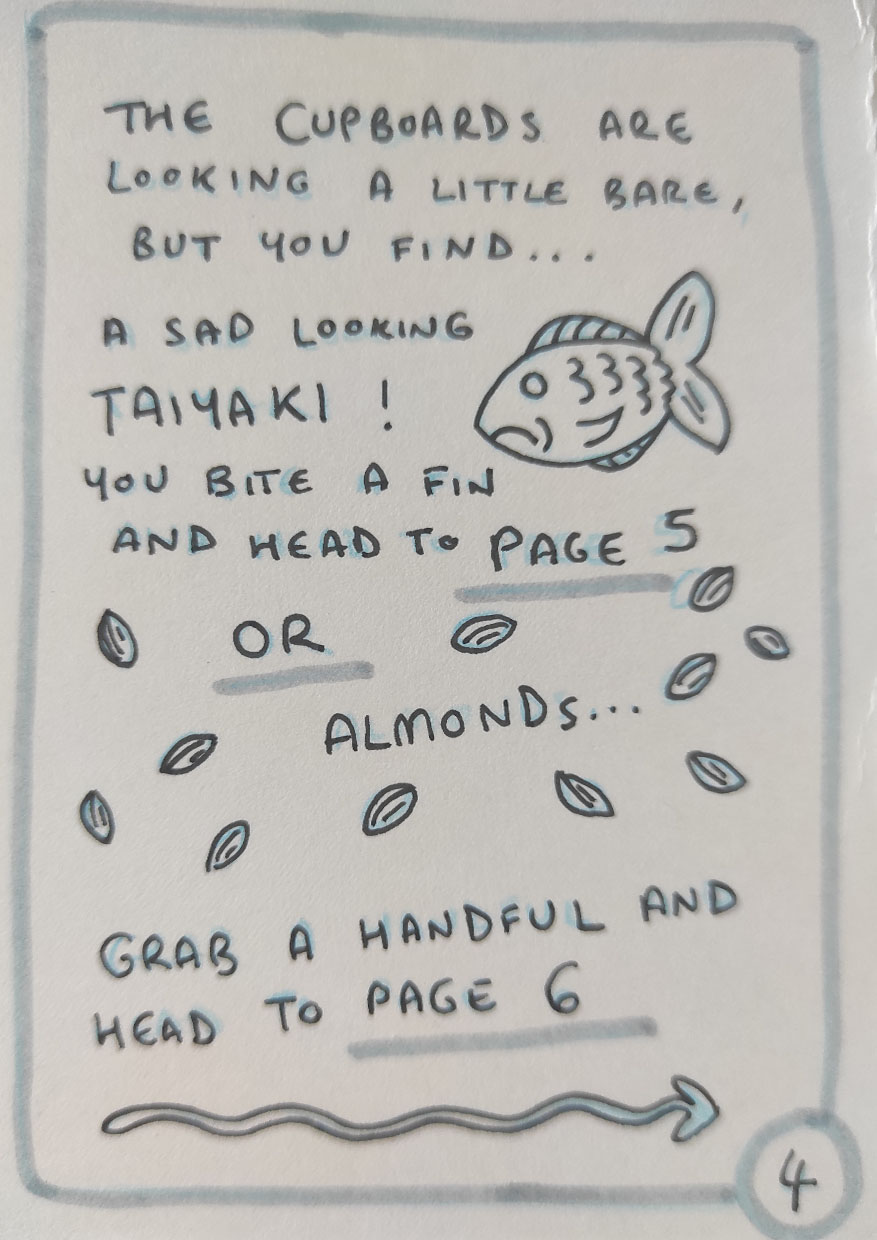 THE CUPBOARDS ARE
LOOKING A LITTLE BARE,
BUT YOU FIND...
A SAD LOOKING
TAIYAKI !
YOU BITE A FIN
AND HEAD TO PAGE 5
OR
ALMONDS...
GRAB A HANDFUL AND
HEAD TO PAGE 6
4